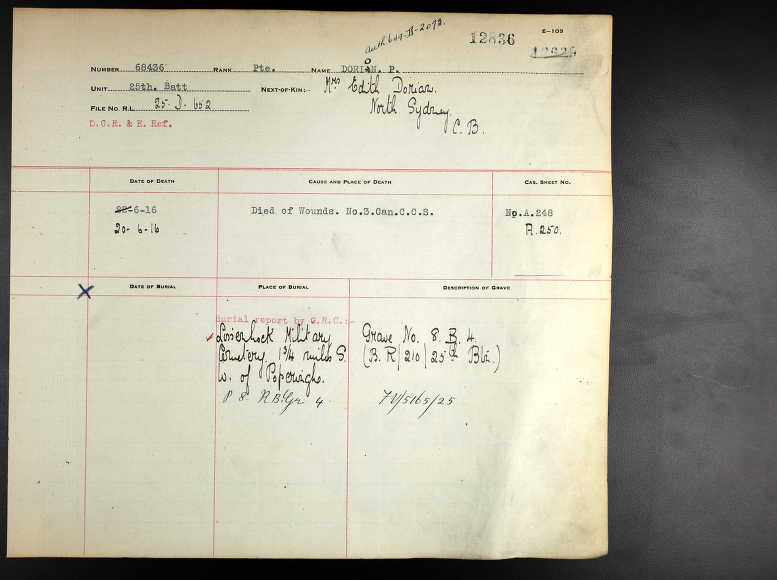 Auth 649-D-2073.
E-103
12836
NUMBER 68436 RANK Pte. NAME DORIAN. P.
UNIT 25th. Batt NEXT-OF-KIN:- Mrs Edith Dorian.
FILE NO. R.L. 25. D. 652 North Sydney
D.C.R. & E. Ref. C. B.
DATE OF DEATH CAUSE AND PLACE OF DEATH CAS. SHEET NO.
22-6-16 Died of Wounds. No.3.Can.C.C.S. No.A.248
20-6-16 A.250.
DATE OF BURIAL PLACE OF BURIAL DESCRIPTION OF GRAVE
Burial report by G.R.C.:-
Military Grave No. 8. B. 4.
Cemetery, 1¾ miles S. (B. R/210/25th Btn.)
W. of
P 8 R.B. Gr 4 7V/5165/25